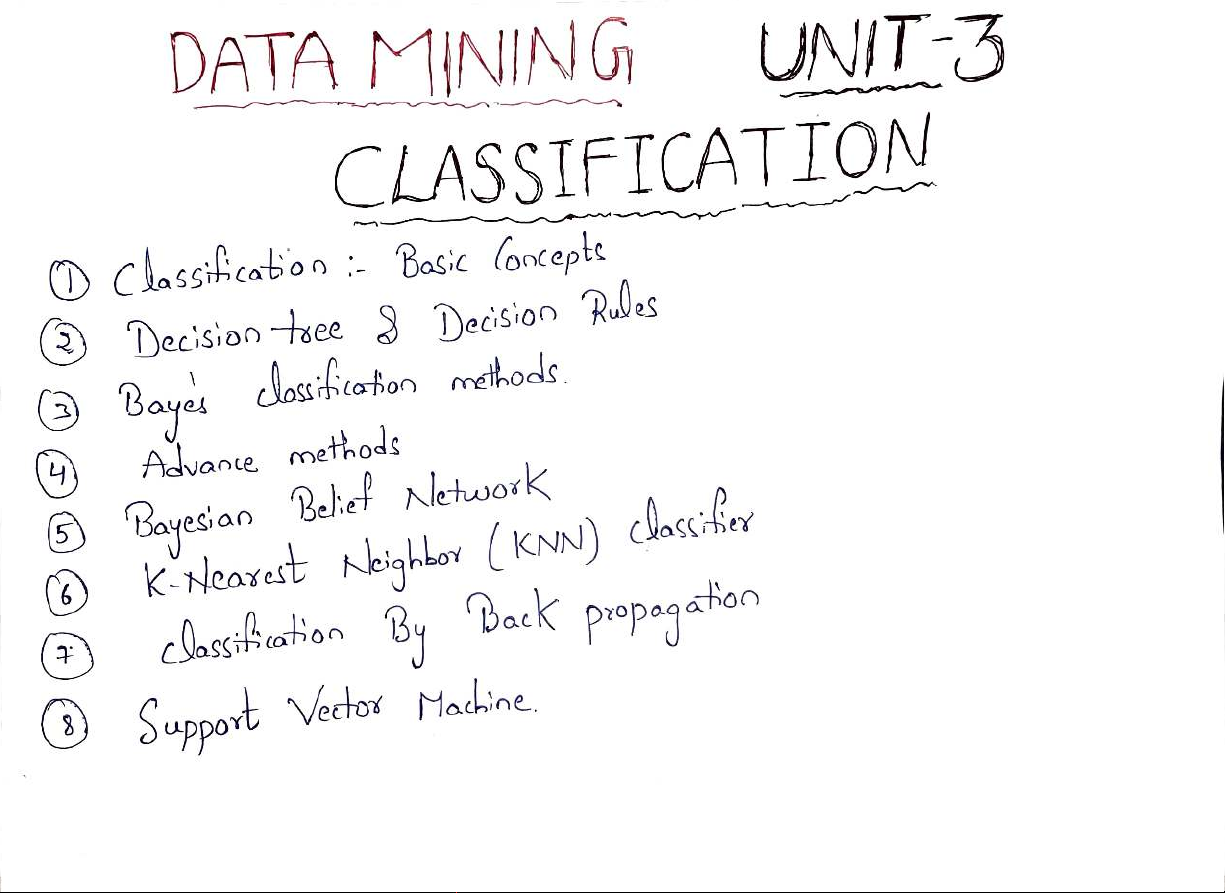 DATA MINING UNIT-3
CLASSIFICATION
① Classification :- Basic Concepts
② Decision tree & Decision Rules
③ Baye's classification methods.
④ Advance methods
⑤ Bayesian Belief Network
⑥ K-Nearest Neighbor (KNN) classifier
⑦ classification By Back propagation
⑧ Support Vector Machine.